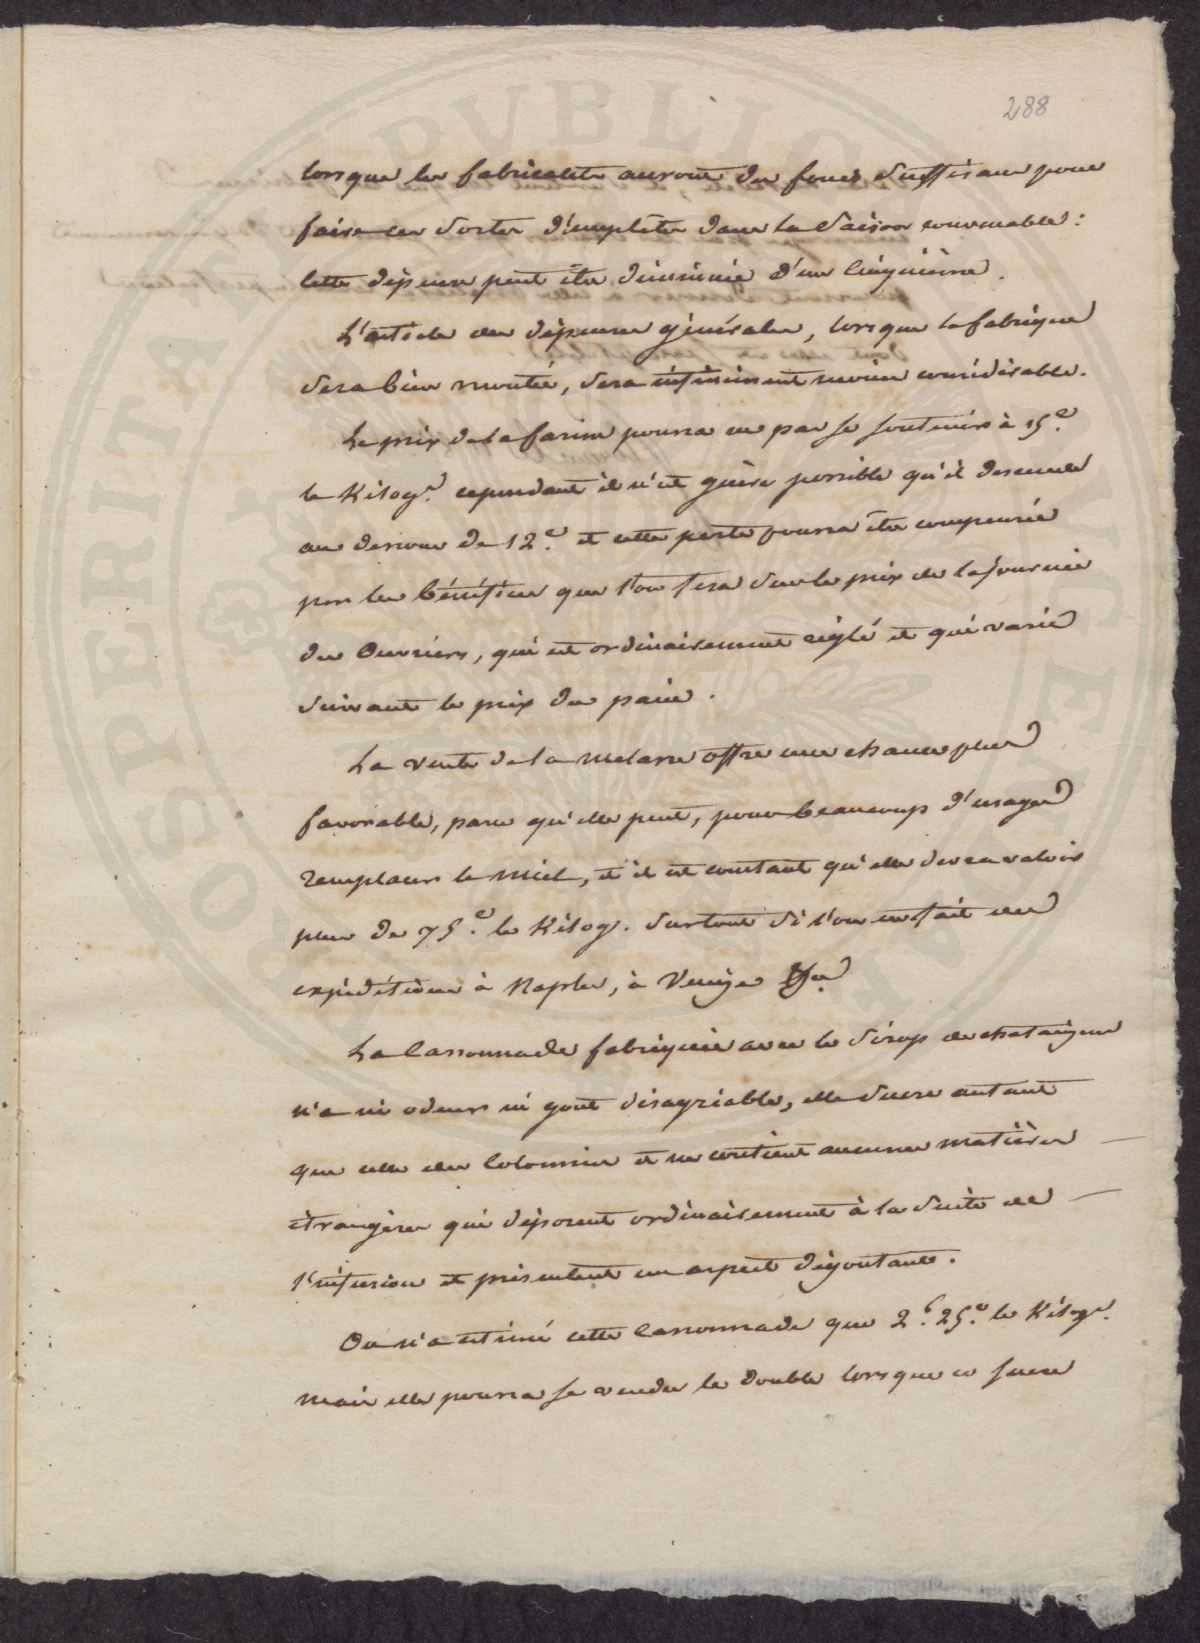 288
lorsque les fabricants auront des fonds suffisans pour
faire ces sortes d'emplêtes dans la saison convenable:
cette dépense peut être diminuée d'un cinquième.
L'article des dépenses générales, lorsque la fabrique
sera bien montée, sera infiniment moins considérable.
Le prix de la farine pourra ne pas se soutenir à 15.c
le Kilog.e cependant il n'est guère possible qu'il descende
au dessous de 12.c et cette perte pourra être compensée
par les bénéfices que l'on fera sur le prix de la journée
des Ouvriers, qui est ordinairement réglé et qui varie
suivant le prix du pain.
La vente de la melasse offre une chance plus
favorable, parce qu'elle peut, pour beaucoup d'usages
remplacer le miel, et il est constant qu'elle devra valoir
plus de 75.c le Kilog. surtout si l'on en fait des
expéditions à Naples, à Venise &a
La Cassonnade fabriquée avec le Sirop de chataignes
n'a ni odeur ni gout désagréable, elle sucre autant
que celle des Colonnies et ne contient aucunes matières
étrangères qui déposent ordinairement à la suite de
l'infusion et présentent un aspect dégoutant.
On n'a estimé cette Cassonnade que 2.f 25.c le Kilog.e
mais elle pourra se vendre le double lorsque ce sucre
PVBLIC